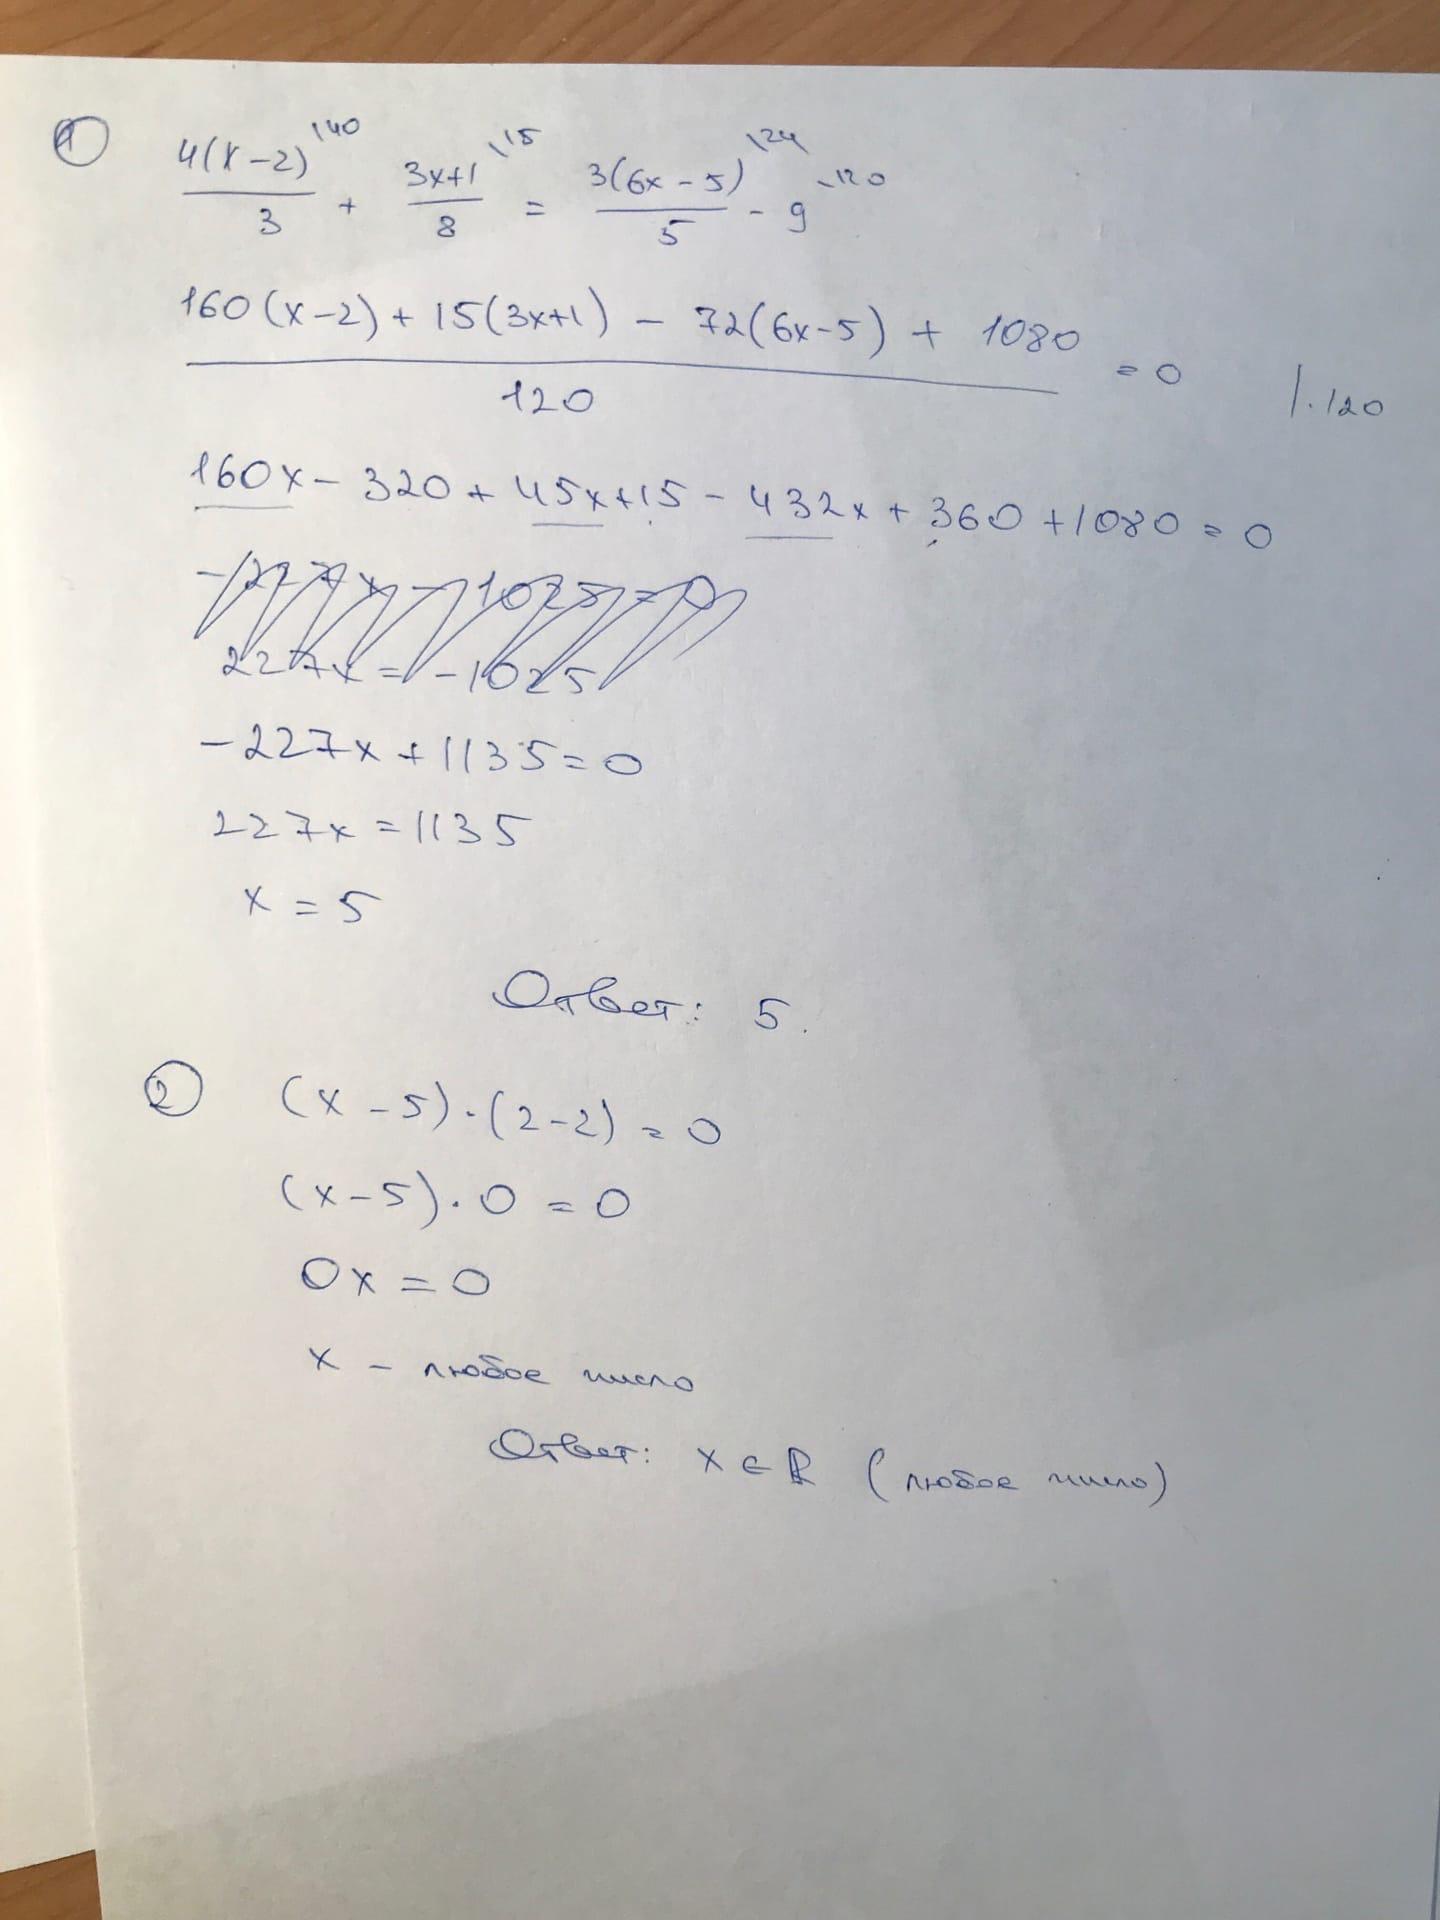 ① 4(x-2)\40 / 3 + 3x+1\15 / 8 = 3(6x-5)\24 / 5 - 9\120
160(x-2) + 15(3x+1) - 72(6x-5) + 1080 / 120 = 0 |·120
160x - 320 + 45x + 15 - 432x + 360 + 1080 = 0
227x = -1025
-227x + 1135 = 0
227x = 1135
x = 5
Ответ: 5.
② (x-5)·(2-2) = 0
(x-5)·0 = 0
0x = 0
x - любое число
Ответ: x ∈ R (любое число)